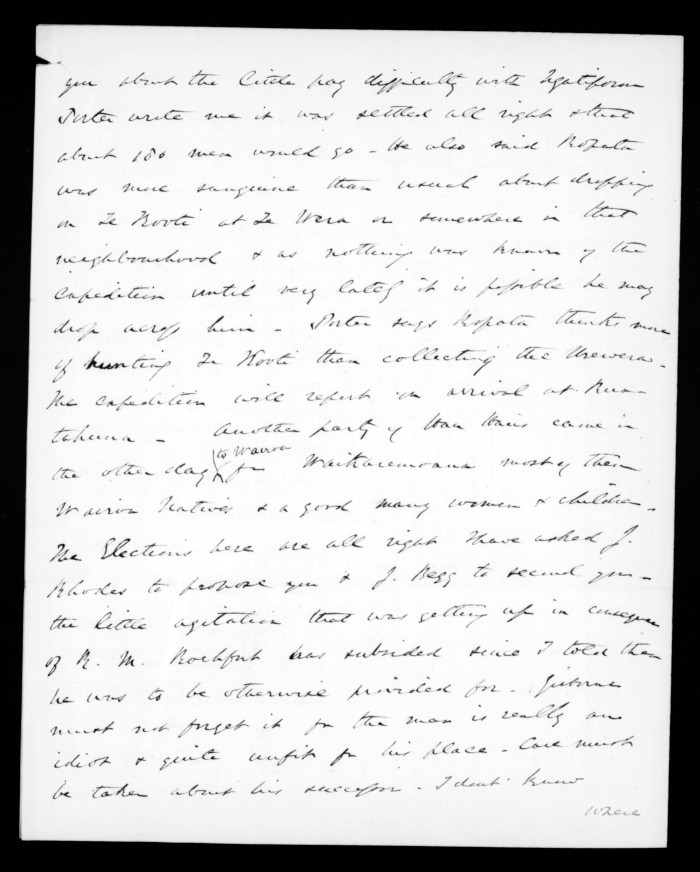 you about the little pay difficulty with Ngatiporou
Porter wrote me it was settled all right & that
about 180 men would go - He also said Ropata
was more sanguine than usual about dropping
on Te Kooti at Te Wera or somewhere in that
neighbourhood & as nothing was known of the
expedition until very lately it is possible he may
drop across him - Porter says Ropata thinks more
of hunting Te Kooti than collecting the Urewera -
The expedition will report on arrival at Rua-
tahuna - Another party of Hau Haus came in
to Wairoa
the other day fm Waikaremoana most of them
Wairoa Natives & a good many women & children -
The Elections here are all right I have asked J.
Rhodes to propose you & J. Begg to second you -
the little agitation that was getting up in consequence
of R. M. Rochfort has subsided since I told them
he was to be otherwise provided for - Gisborne
must not forget it for the man is really an
idiot & quite unfit for his place - Care must
be taken about his successor - I dont know
where